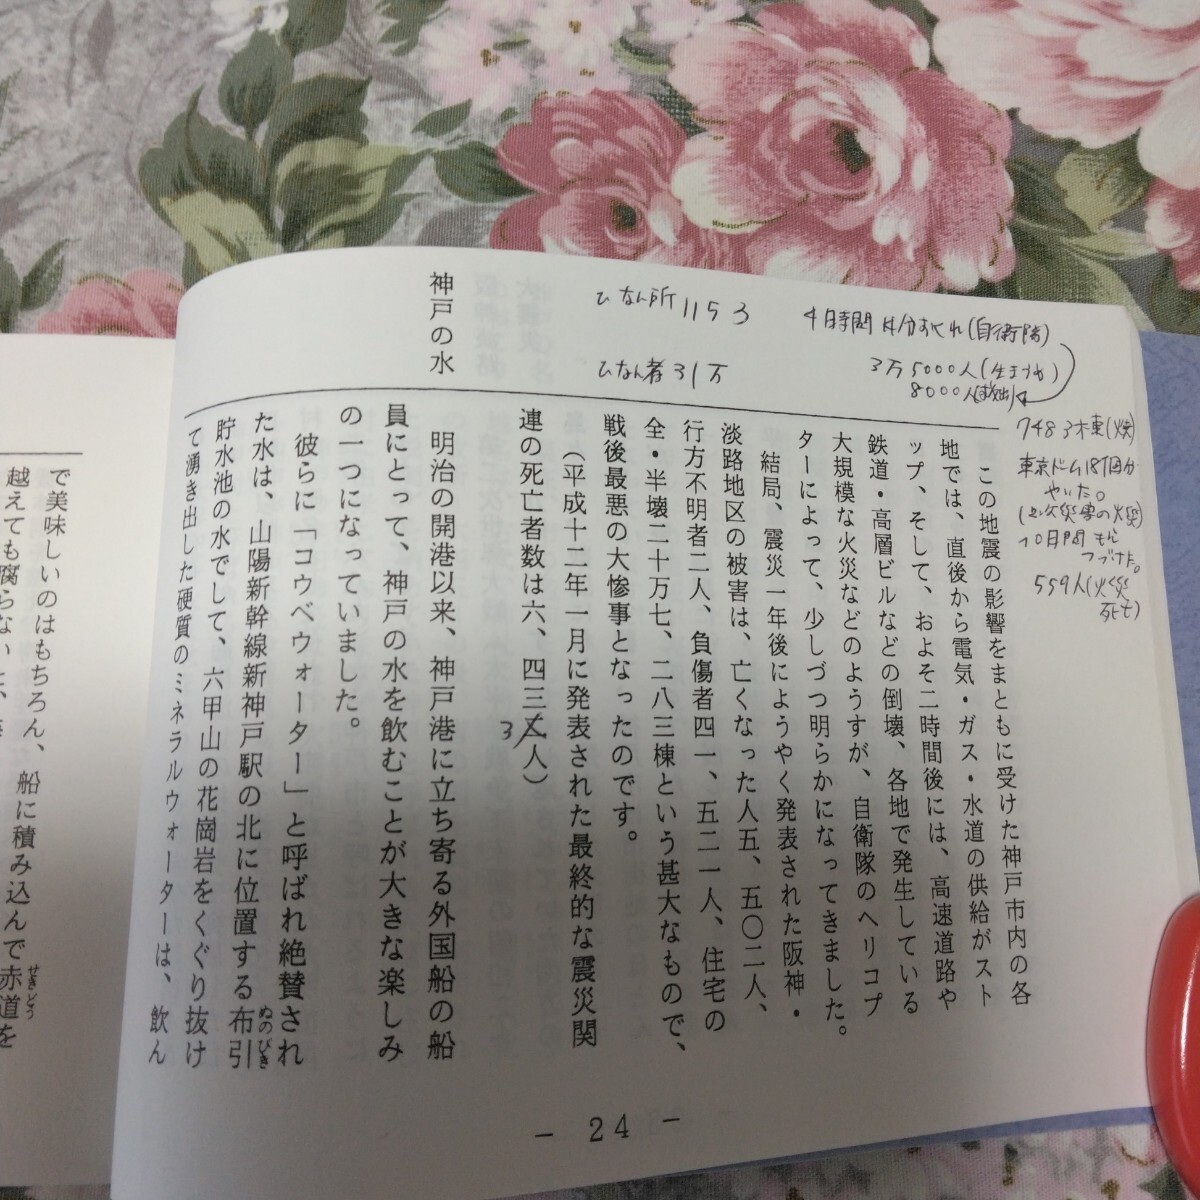 ひなん所 1153
ひなん者 31万
4日時間
(自衛隊)
3万5000人(生
8000人(救出)
7483棟(焼)
東京ドーム
やいた。
10日間
つづけた。
559人(火災
死亡)
この地震の影響をまともに受けた神戸市内の各
地では、直後から電気・ガス・水道の供給がスト
ップ、そして、およそ二時間後には、高速道路や
鉄道・高層ビルなどの倒壊、各地で発生している
大規模な火災などのようすが、自衛隊のヘリコプ
ターによって、少しづつ明らかになってきました。
結局、震災一年後にようやく発表された阪神・
淡路地区の被害は、亡くなった人五、五〇二人、
行方不明者二人、負傷者四一、五二一人、住宅の
全・半壊二十万七、二八三棟という甚大なもので、
戦後最悪の大惨事となったのです。
(平成十二年一月に発表された最終的な震災関
連の死亡者数は六、四三
3
人)
神戸の水
明治の開港以来、神戸港に立ち寄る外国船の船
員にとって、神戸の水を飲むことが大きな楽しみ
の一つになっていました。
彼らに「コウベウォーター」と呼ばれ絶賛され
た水は、山陽新幹線新神戸駅の北に位置する布引
ぬのびき
貯水池の水でして、六甲山の花崗岩をくぐり抜け
て湧き出した硬質のミネラルウォーターは、飲ん
で美味しいのはもちろん、船に積み込んで赤道を
せきどう
越えても腐らない
- 24 -